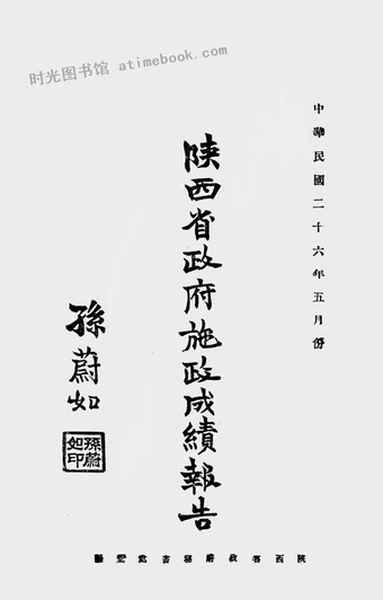 时光图书馆 atimebook.com
中華民國二十六年五月份
陝西省政府施政成績報告
孫蔚如
孫蔚如印
陝西省政府秘書處